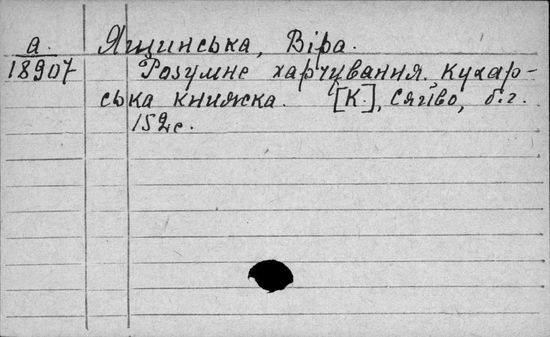 а. Ящинська, Віра.
18907 Розумне харчування. Кухар-
ська книжка. [К.], Сяйво, б.г.
152с.